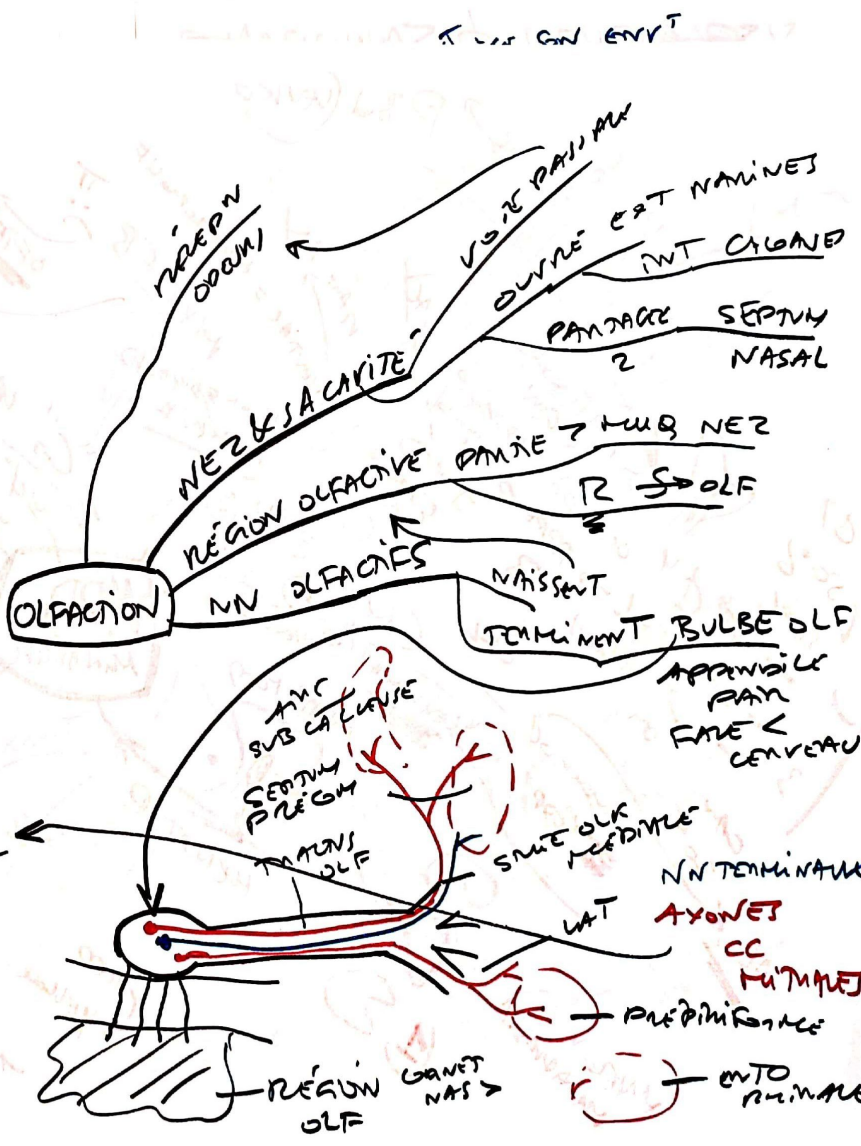 GN ENVT
RÉCEPN
ODEURS
VOIE PASSAGE
OUVRE EXT NARINES
INT CHOANES
PARTAGÉE SEPTUM
2 NASAL
NEZ & SA CAVITÉ
RÉGION OLFACTIVE PARTIE > MUQ NEZ
R OLF
OLFACTION
NN OLFACTIFS
NAISSENT
TERMINENT BULBE OLF
APPENDICE
PAIR
FACE <
CERVEAU
AIRE
SUBCALLEUSE
SEPTUM
PRÉCOM
TRACTUS
OLF
STRIE OLF
MÉDIALE
LAT
NN TERMINAUX
AXONES
CC
MITRALES
PRÉPIRIFORME
ENTO
RHINALE
RÉGION
OLF
CORNET
NAS >